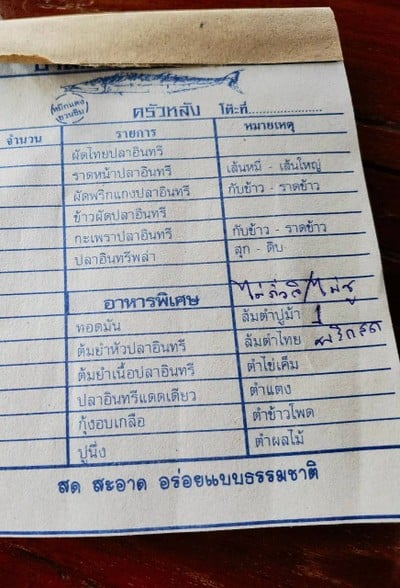 พริกแกง
ชวนชิม
ครัวหลัง โต๊ะที่
จำนวน รายการ หมายเหตุ
ผัดไทยปลาอินทรี
ราดหน้าปลาอินทรี เส้นหมี่ - เส้นใหญ่
ผัดพริกแกงปลาอินทรี กับข้าว - ราดข้าว
ข้าวผัดปลาอินทรี
กะเพราปลาอินทรี กับข้าว - ราดข้าว
ปลาอินทรีพล่า สุก - ดิบ
อาหารพิเศษ
ทอดมัน ส้มตำปูม้า 1
ต้มยำหัวปลาอินทรี ส้มตำไทย พริกสด
ต้มยำเนื้อปลาอินทรี ตำไข่เค็ม
ปลาอินทรีแดดเดียว ตำแตง
กุ้งอบเกลือ ตำข้าวโพด
ปูนึ่ง ตำผลไม้
สด สะอาด อร่อยแบบธรรมชาติ